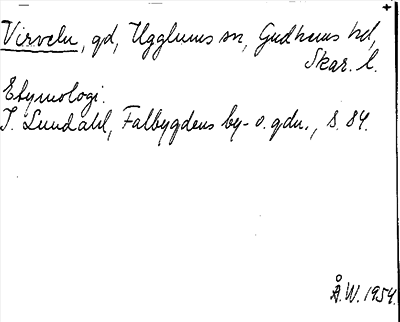 Virveln, gd, Ugglums sn, Gudhems hd,
Skar. l.
Etymologi.
I. Lundahl, Falbygdens by- o. gdn., s. 84.
Å.W. 1954.